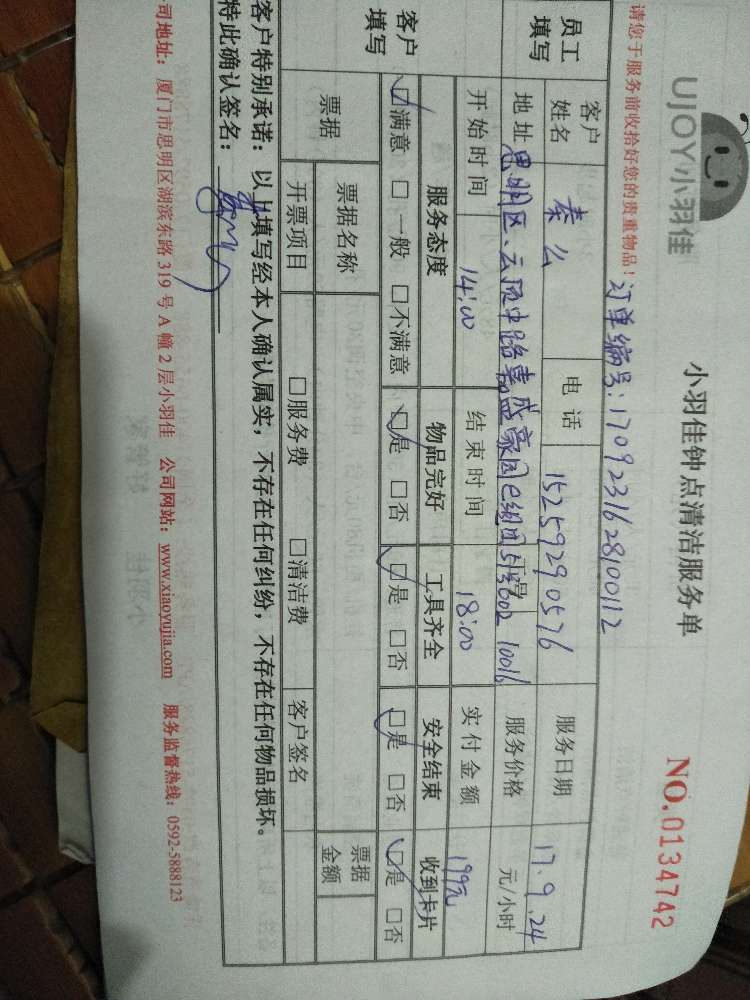 UJOY小羽佳
小羽佳钟点清洁服务单
NO.0134742
请您于服务前收拾好您的贵重物品！
订单编号:1709231628100112
员工填写
客户姓名 秦么 电话 15259290576 服务日期 17.9.24
地址 思明区、云顶中路嘉盛豪园 服务价格 元/小时
开始时间 14:00 结束时间 18:00 实付金额 199元
客户填写
服务态度 物品完好 工具齐全 安全结束 收到卡片
☑满意 □一般 □不满意 ☑是 □否 ☑是 □否 ☑是 □否 ☑是 □否
票据 票据名称 票据金额
开票项目 □服务费 □清洁费 客户签名
客户特别承诺：以上填写经本人确认属实，不存在任何纠纷，不存在任何物品损坏。
特此确认签名：
司地址：厦门市思明区湖滨东路 319 号 A 幢 2 层小羽佳 公司网站：www.xiaoyujia.com 服务监督热线：0592-5888123